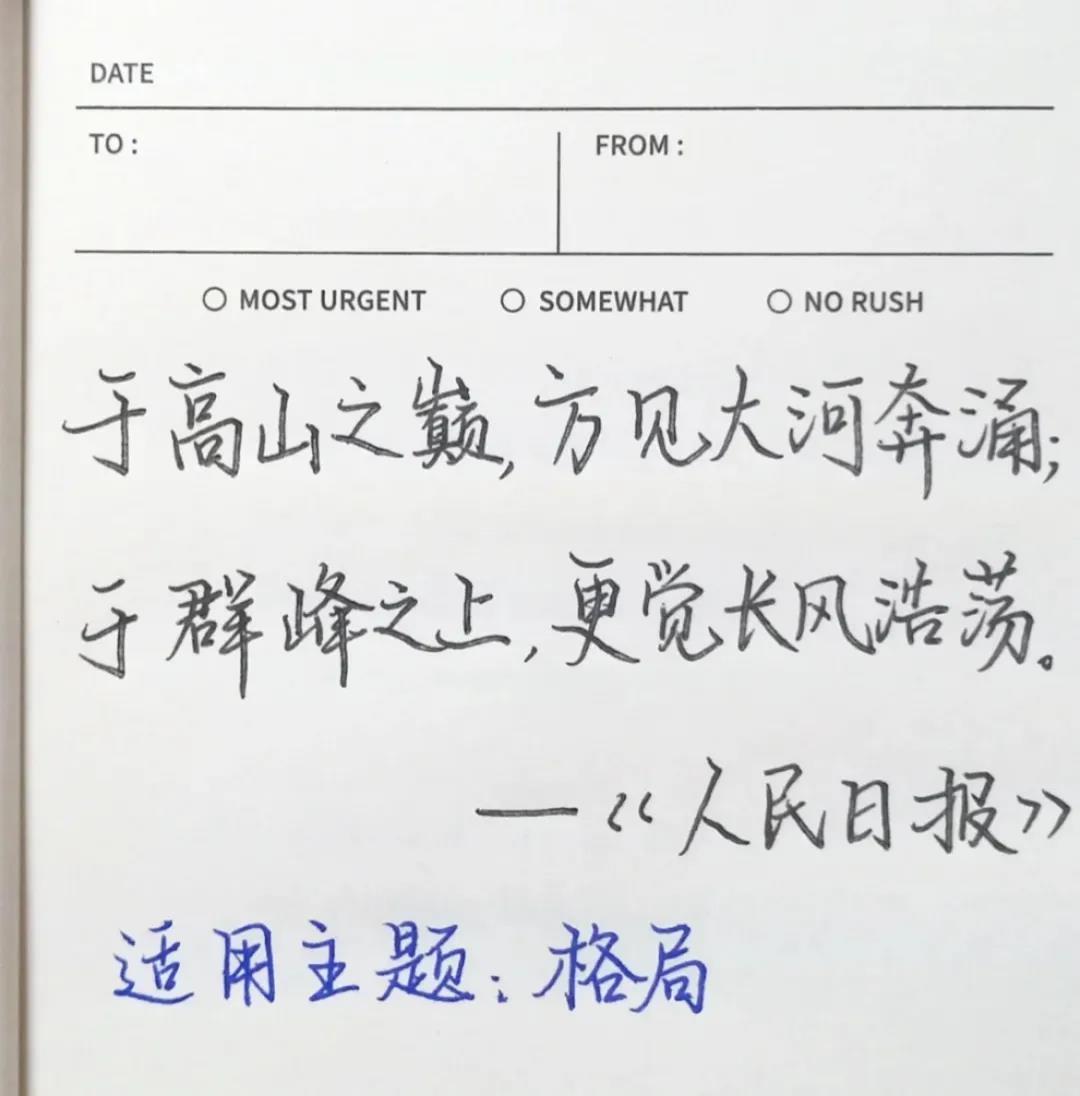 DATE
TO : FROM :
○ MOST URGENT ○ SOMEWHAT ○ NO RUSH
于高山之巅,方见大河奔涌;
于群峰之上,更觉长风浩荡。
—《人民日报》
适用主题:格局